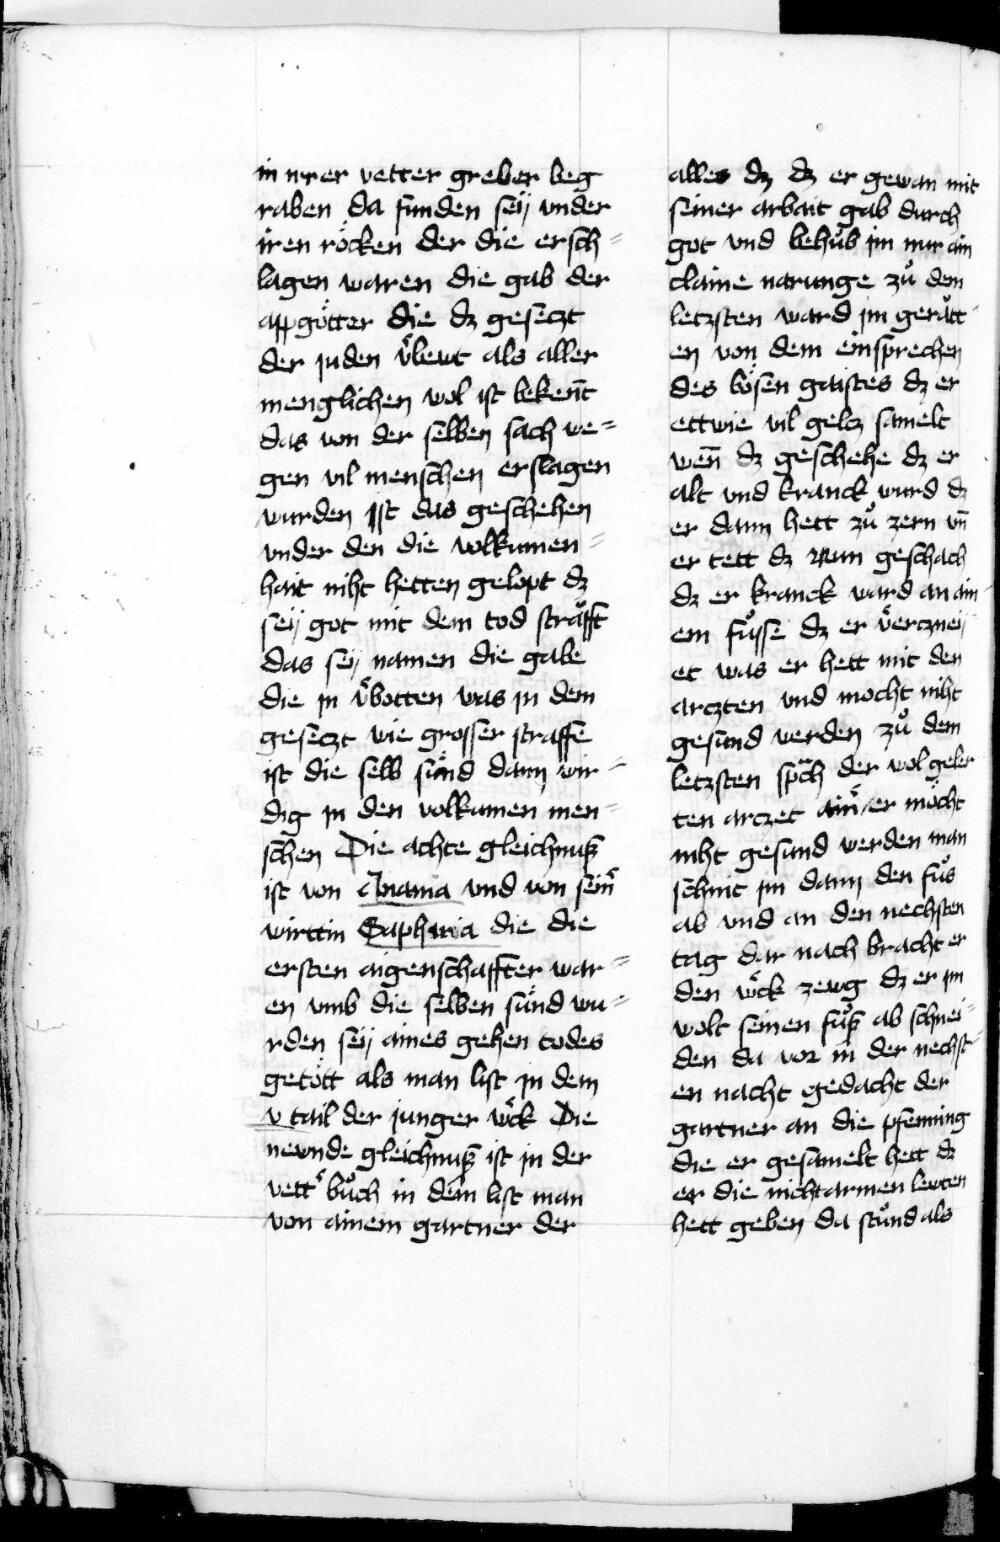 in irer vetter greber beg
raben da funden seÿ vnder
iren röcken der die ersch=
lagen waren die gab der
appgötter die dz gesetzt
der juden v̈beut als aller
menglichen wol ist bekent̄
das von der selben sach we=
gen vil menschen erslagen
wurden jst das geschehen
vnder den die volkumen=
hait niht hetten gelopt dz
seÿ got mit dem tod strǎfft
das seÿ namen die gabe
die in v̈botten was in dem
gesetzt wie grosser straffe
ist die selb sünd dann wir=
dig in den volkumen men=
schen Die achte gleichnuß
ist von Anania vnd von sein̄
wirttin Saphiria die die
ersten aigenschaffter war=
en vmb die selben sünd wu=
rden seÿ aines gehen todes
getött als man list in dem
v tail der junger wöck Die
newnde gleichnuß ist in der
vett͛ bůch in dem list man
von ainem gartner der
alles dz dz er gewan mit
seiner arbait gab durch
got vnd behůb im nur ain
claine narunge zů dem
letzsten ward im gerǎtt
en von dem einsprechen
des bösen gaistes dz er
ettwie vil geltz samelt
wen̄ dz geschehe dz er
alt vnd kranck wurd dz
er dann hett zů zern vn̄
er tett dz Nun geschach
dz er kranck ward an ain=
em fůsse dz er v̈ercznei
et was er hett mit den
arczten vnd mocht niht
gesund werden zů dem
letzsten sp̈ch der wol geler
ten arczet ain͛ er möcht
niht gesund werden man
schnit im dann den fůs
ab vnd an den nechsten
tag dar nach bracht er
den wöck zewg dz er im
wolt seinen fůß ab schnei=
den da vor in der nechst=
en nacht gedacht der
gartner an die pfenning
die er gesamelt hett dz
er die nicht armen lewten
hett geben da stůnd als